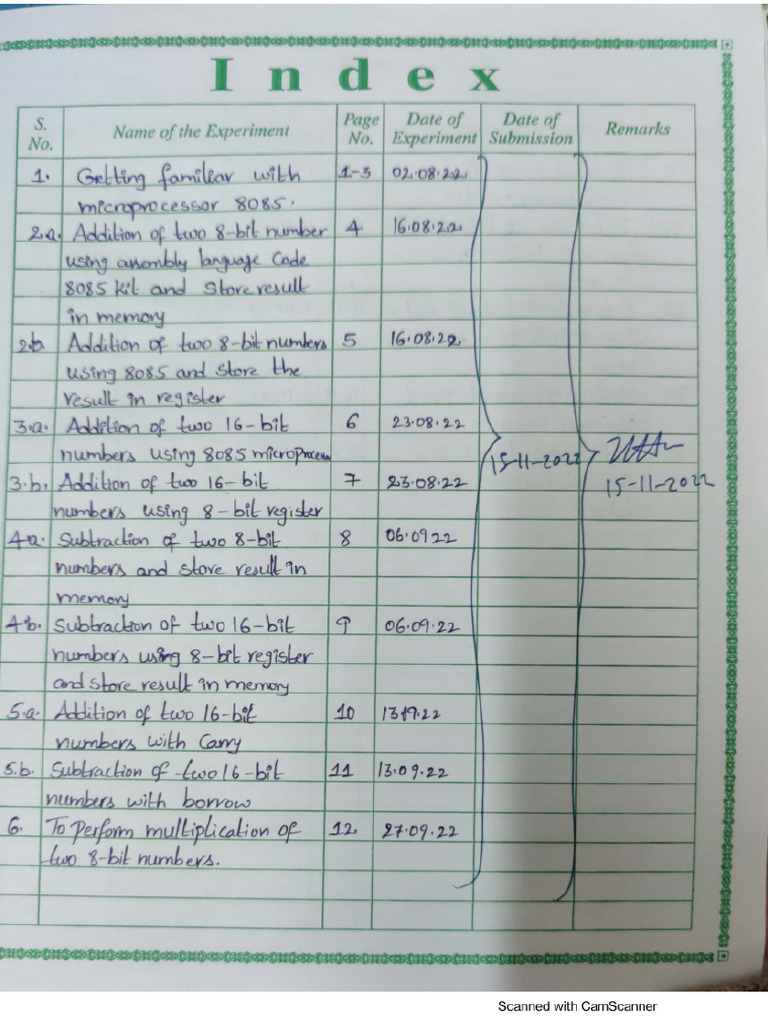 Index
S. No. Name of the Experiment Page No. Date of Experiment Date of Submission Remarks
1. Getting familiar with 1-3 02.08.22
microprocessor 8085.
2.a. Addition of two 8-bit number 4 16.08.22
using assembly language code
8085 kit and store result
in memory
2.b Addition of two 8-bit numbers 5 16.08.22
using 8085 and store the
result in register
3.a. Addition of two 16-bit 6 23.08.22
numbers using 8085 microprocess
15-11-2022
3.b. Addition of two 16-bit 7 23.08.22 15-11-2022
numbers using 8-bit register
4.a. Subtraction of two 8-bit 8 06.0922
numbers and store result in
memory
4.b. Subtraction of two 16-bit 9 06.09.22
numbers using 8-bit register
and store result in memory
5.a. Addition of two 16-bit 10 13.9.22
numbers with Carry
5.b. Subtraction of two 16-bit 11 13.09.22
numbers with borrow
6. To perform multiplication of 12. 27.09.22
two 8-bit numbers.
Scanned with CamScanner